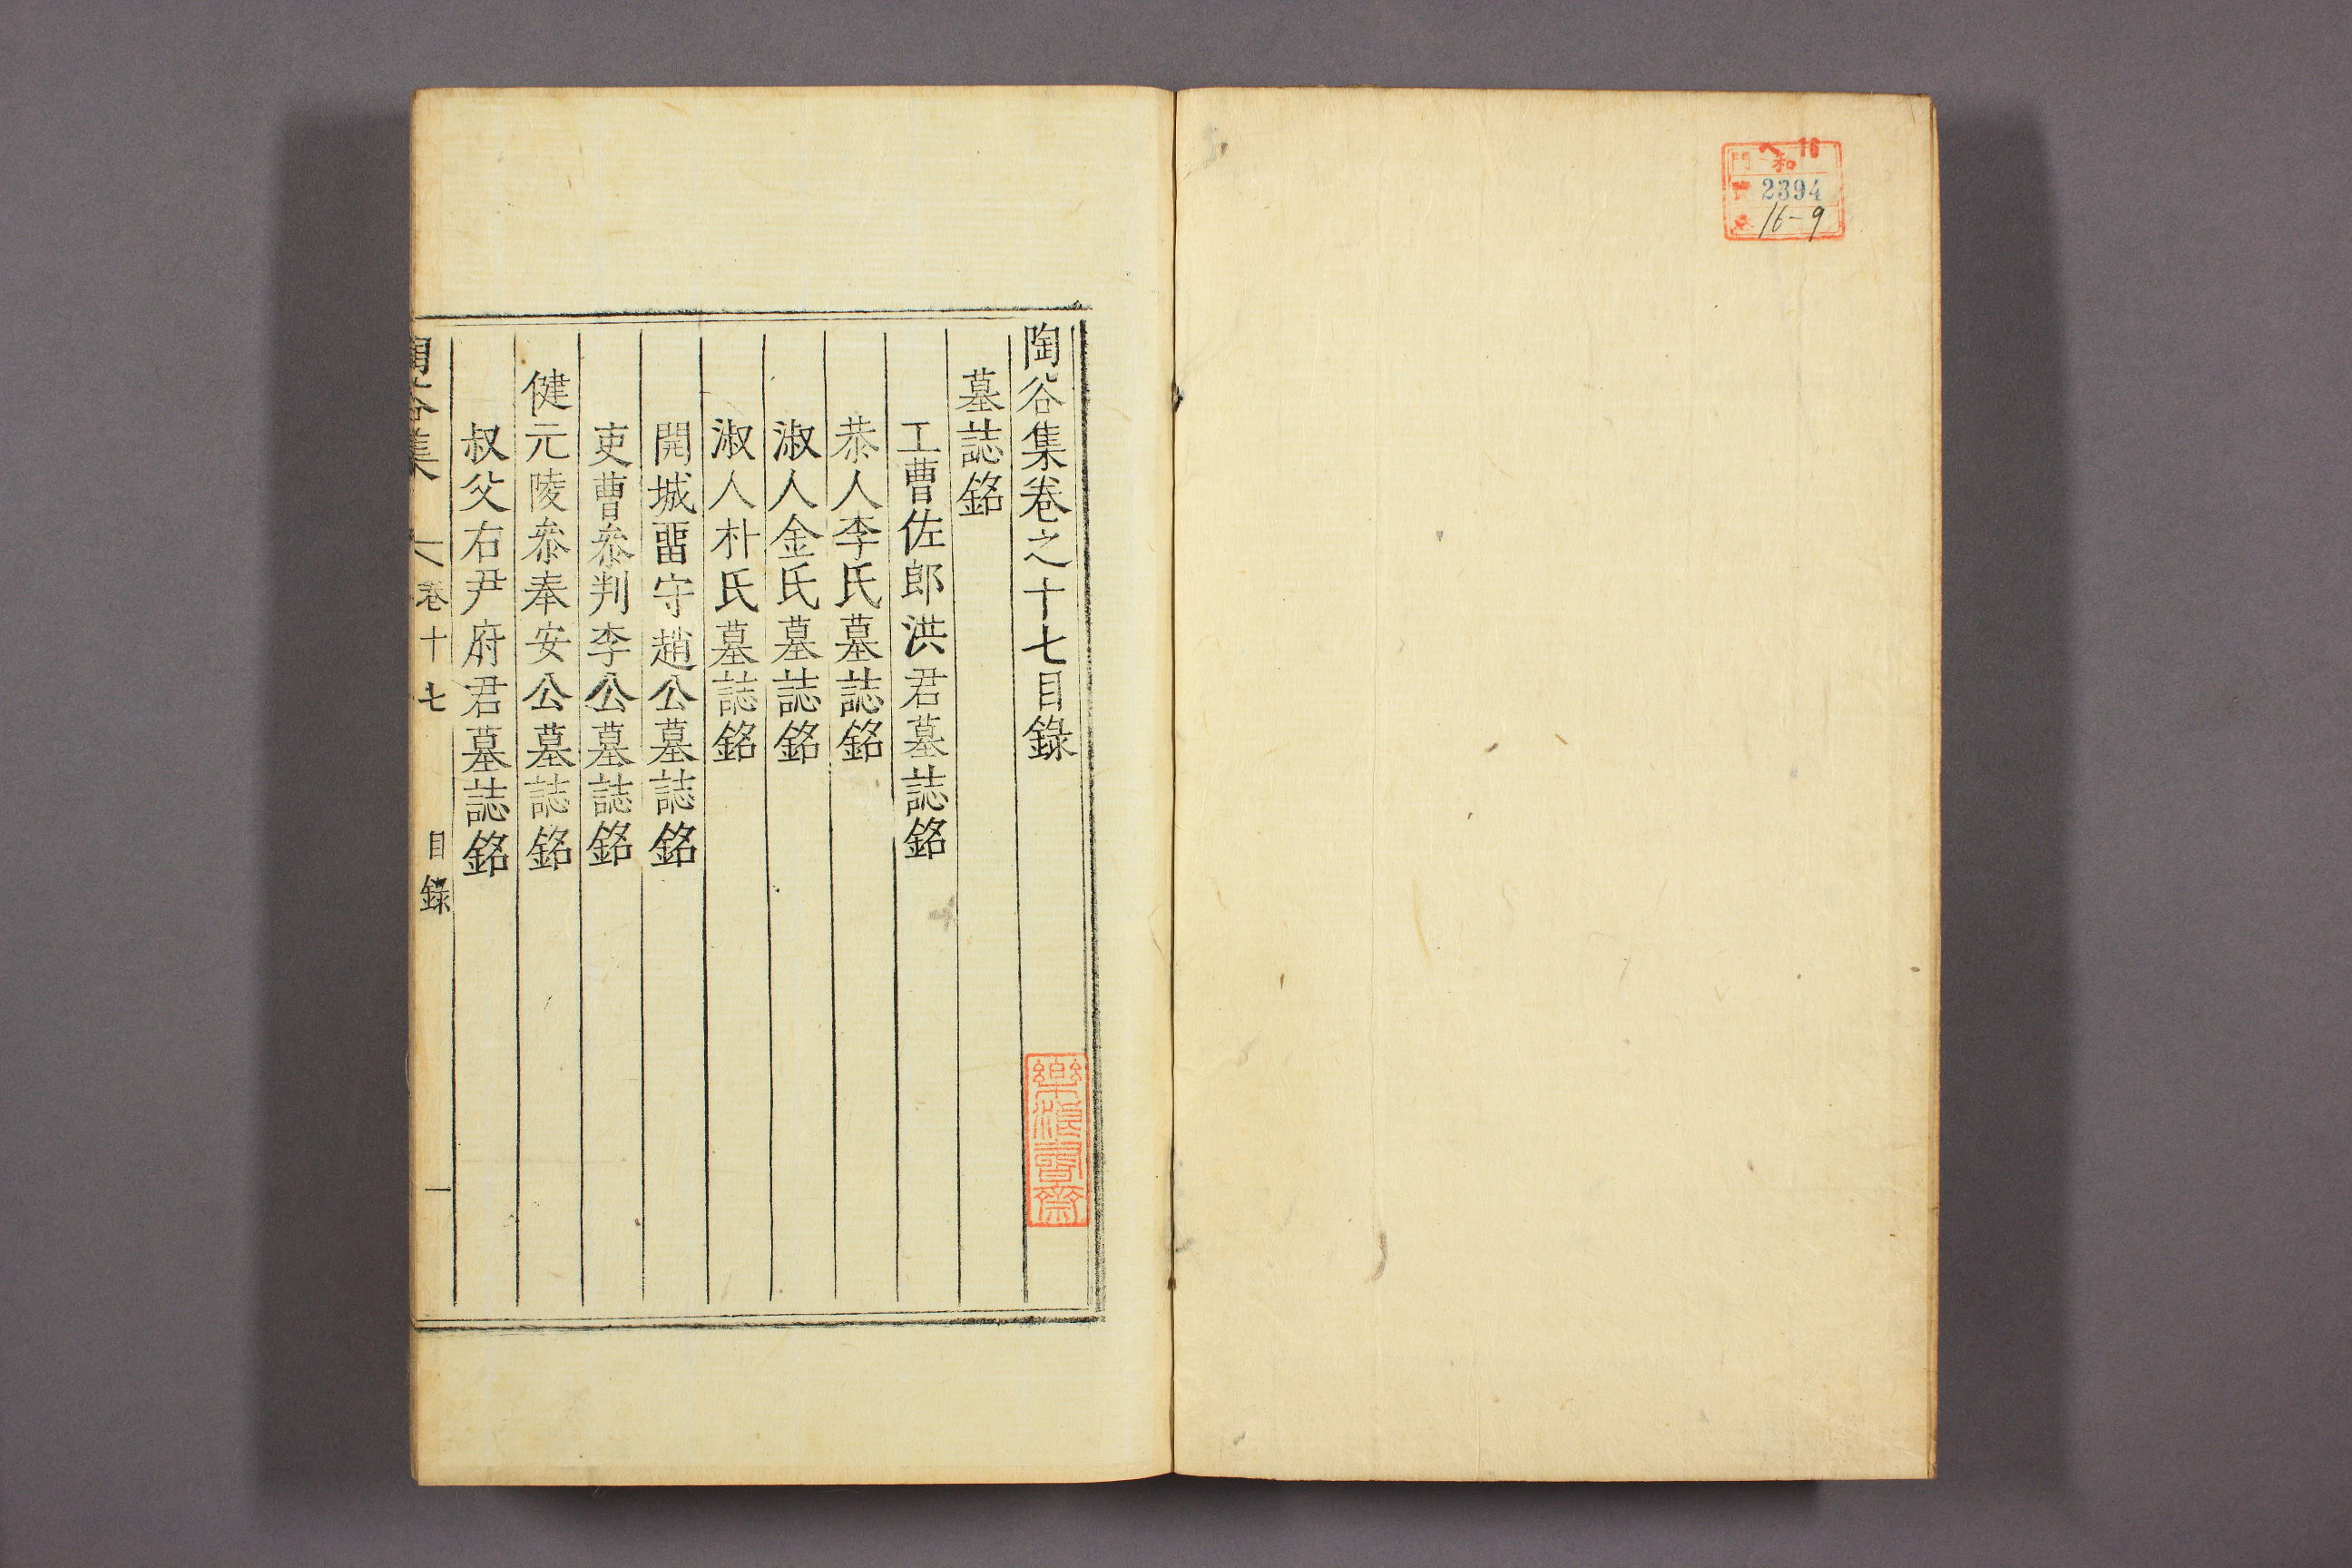 へ 16
門 和
2394
16-9
陶谷集卷之十七目錄
墓誌銘
工曹佐郎洪君墓誌銘
恭人李氏墓誌銘
淑人金氏墓誌銘
淑人朴氏墓誌銘
開城畱守趙公墓誌銘
吏曹叅判李公墓誌銘
健元陵叅奉安公墓誌銘
叔父右尹府君墓誌銘
陶谷集 卷十七 目錄 一